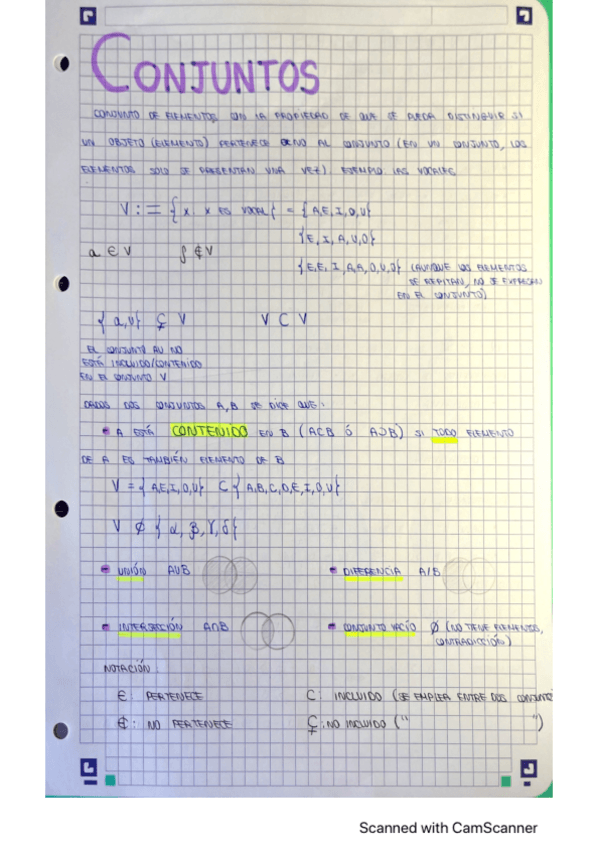 CONJUNTOS
CONJUNTO DE ELEMENTOS CON LA PROPIEDAD DE QUE SE PUEDA DISTINGUIR SI
UN OBJETO (ELEMENTO) PERTENECE O NO AL CONJUNTO (EN UN CONJUNTO, LOS
ELEMENTOS SOLO SE PRESENTAN UNA VEZ). EJEMPLO LAS VOCALES
V := {x. x ES VOCAL} = {A,E,I,O,U}
{E,I,A,U,O}
a ∈ V ∉ V
{E,E,I,A,A,O,U,O} (AUNQUE LOS ELEMENTOS
SE REPITAN, NO SE EXPRESAN
EN EL CONJUNTO)
{a,u} ⊊ V V ⊂ V
EL CONJUNTO AU NO
ESTÁ INCLUIDO/CONTENIDO
EN EL CONJUNTO V
DADOS DOS CONJUNTOS A,B SE DICE QUE:
A ESTÁ CONTENIDO EN B (A⊂B ó A⊃B) SI TODO ELEMENTO
DE A ES TAMBIÉN ELEMENTO DE B
V = {A,E,I,O,U} ⊂ {A,B,C,D,E,I,O,U}
V ⊄ {α, β, γ, δ}
UNIÓN A∪B
DIFERENCIA A/B
INTERSECCIÓN A∩B
CONJUNTO VACÍO Ø (NO TIENE ELEMENTOS,
CONTRADICCIÓN)
NOTACIÓN:
∈: PERTENECE
⊂: INCLUIDO (SE EMPLEA ENTRE DOS CONJUNTO
∉: NO PERTENECE
⊊: NO INCLUIDO (" ")
Scanned with CamScanner